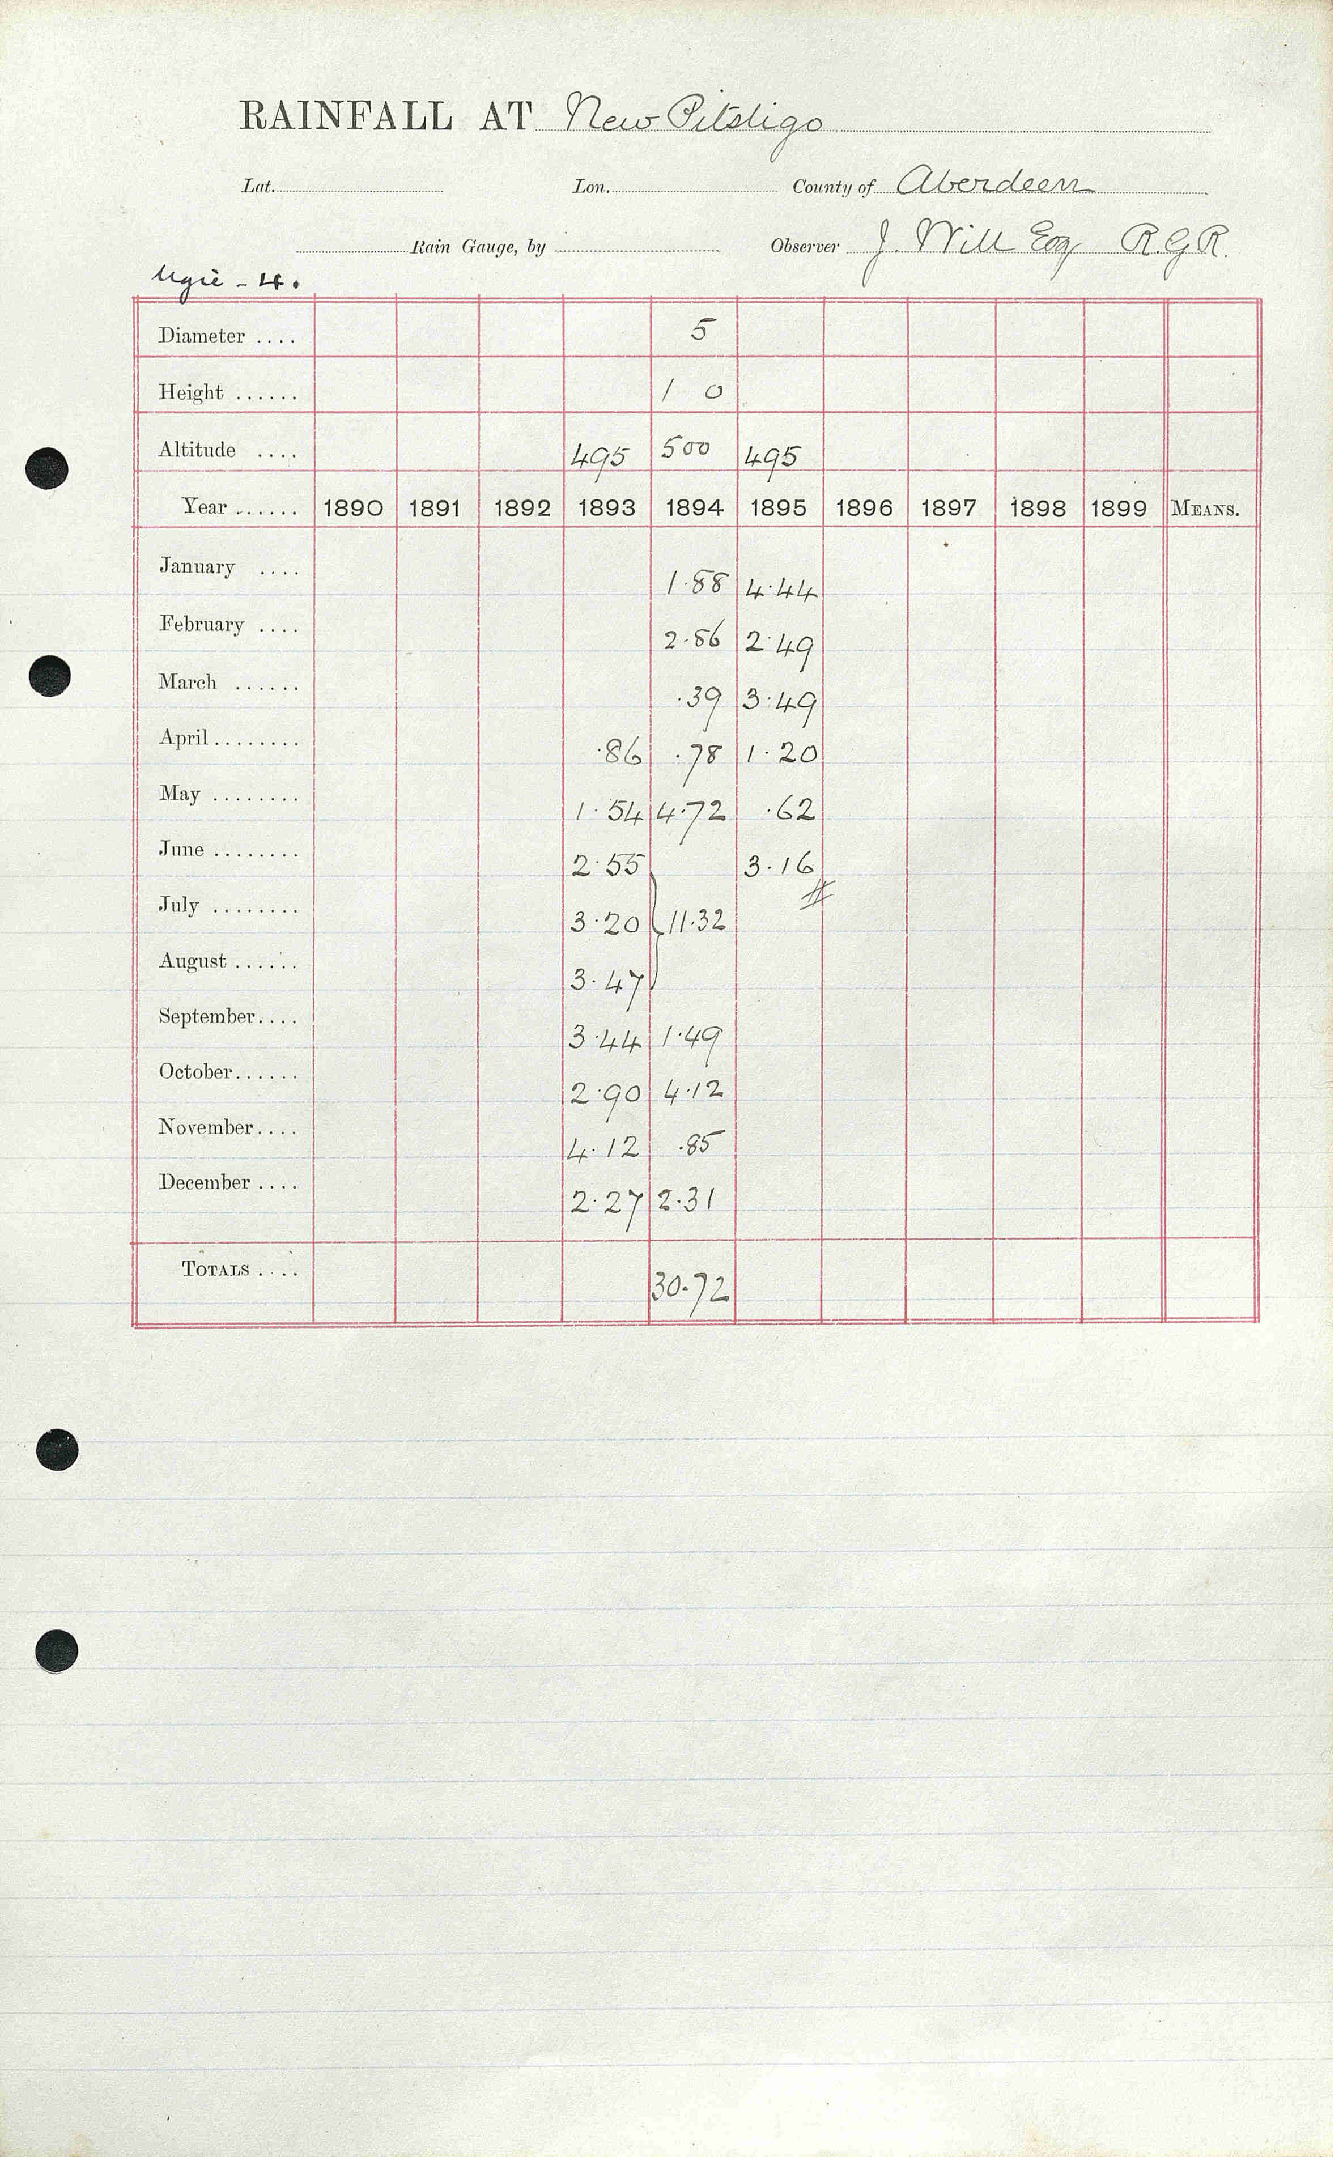 RAINFALL AT New Pitsligo
Lat. Lon. County of Aberdeen
Rain Gauge, by Observer J. Will Esq R.G.R.
Ugie - 4.
Diameter .... 5
Height ...... 1 0
Altitude .... 495 500 495
Year ...... 1890 1891 1892 1893 1894 1895 1896 1897 1898 1899 MEANS.
January .... 1.88 4.44
February .... 2.86 2.49
March ...... .39 3.49
April ........ .86 .78 1.20
May ........ 1.54 4.72 .62
June ........ 2.55 3.16
July ........ 3.20 11.32 #
August ...... 3.47
September.... 3.44 1.49
October...... 2.90 4.12
November.... 4.12 .85
December .... 2.27 2.31
TOTALS .... 30.72